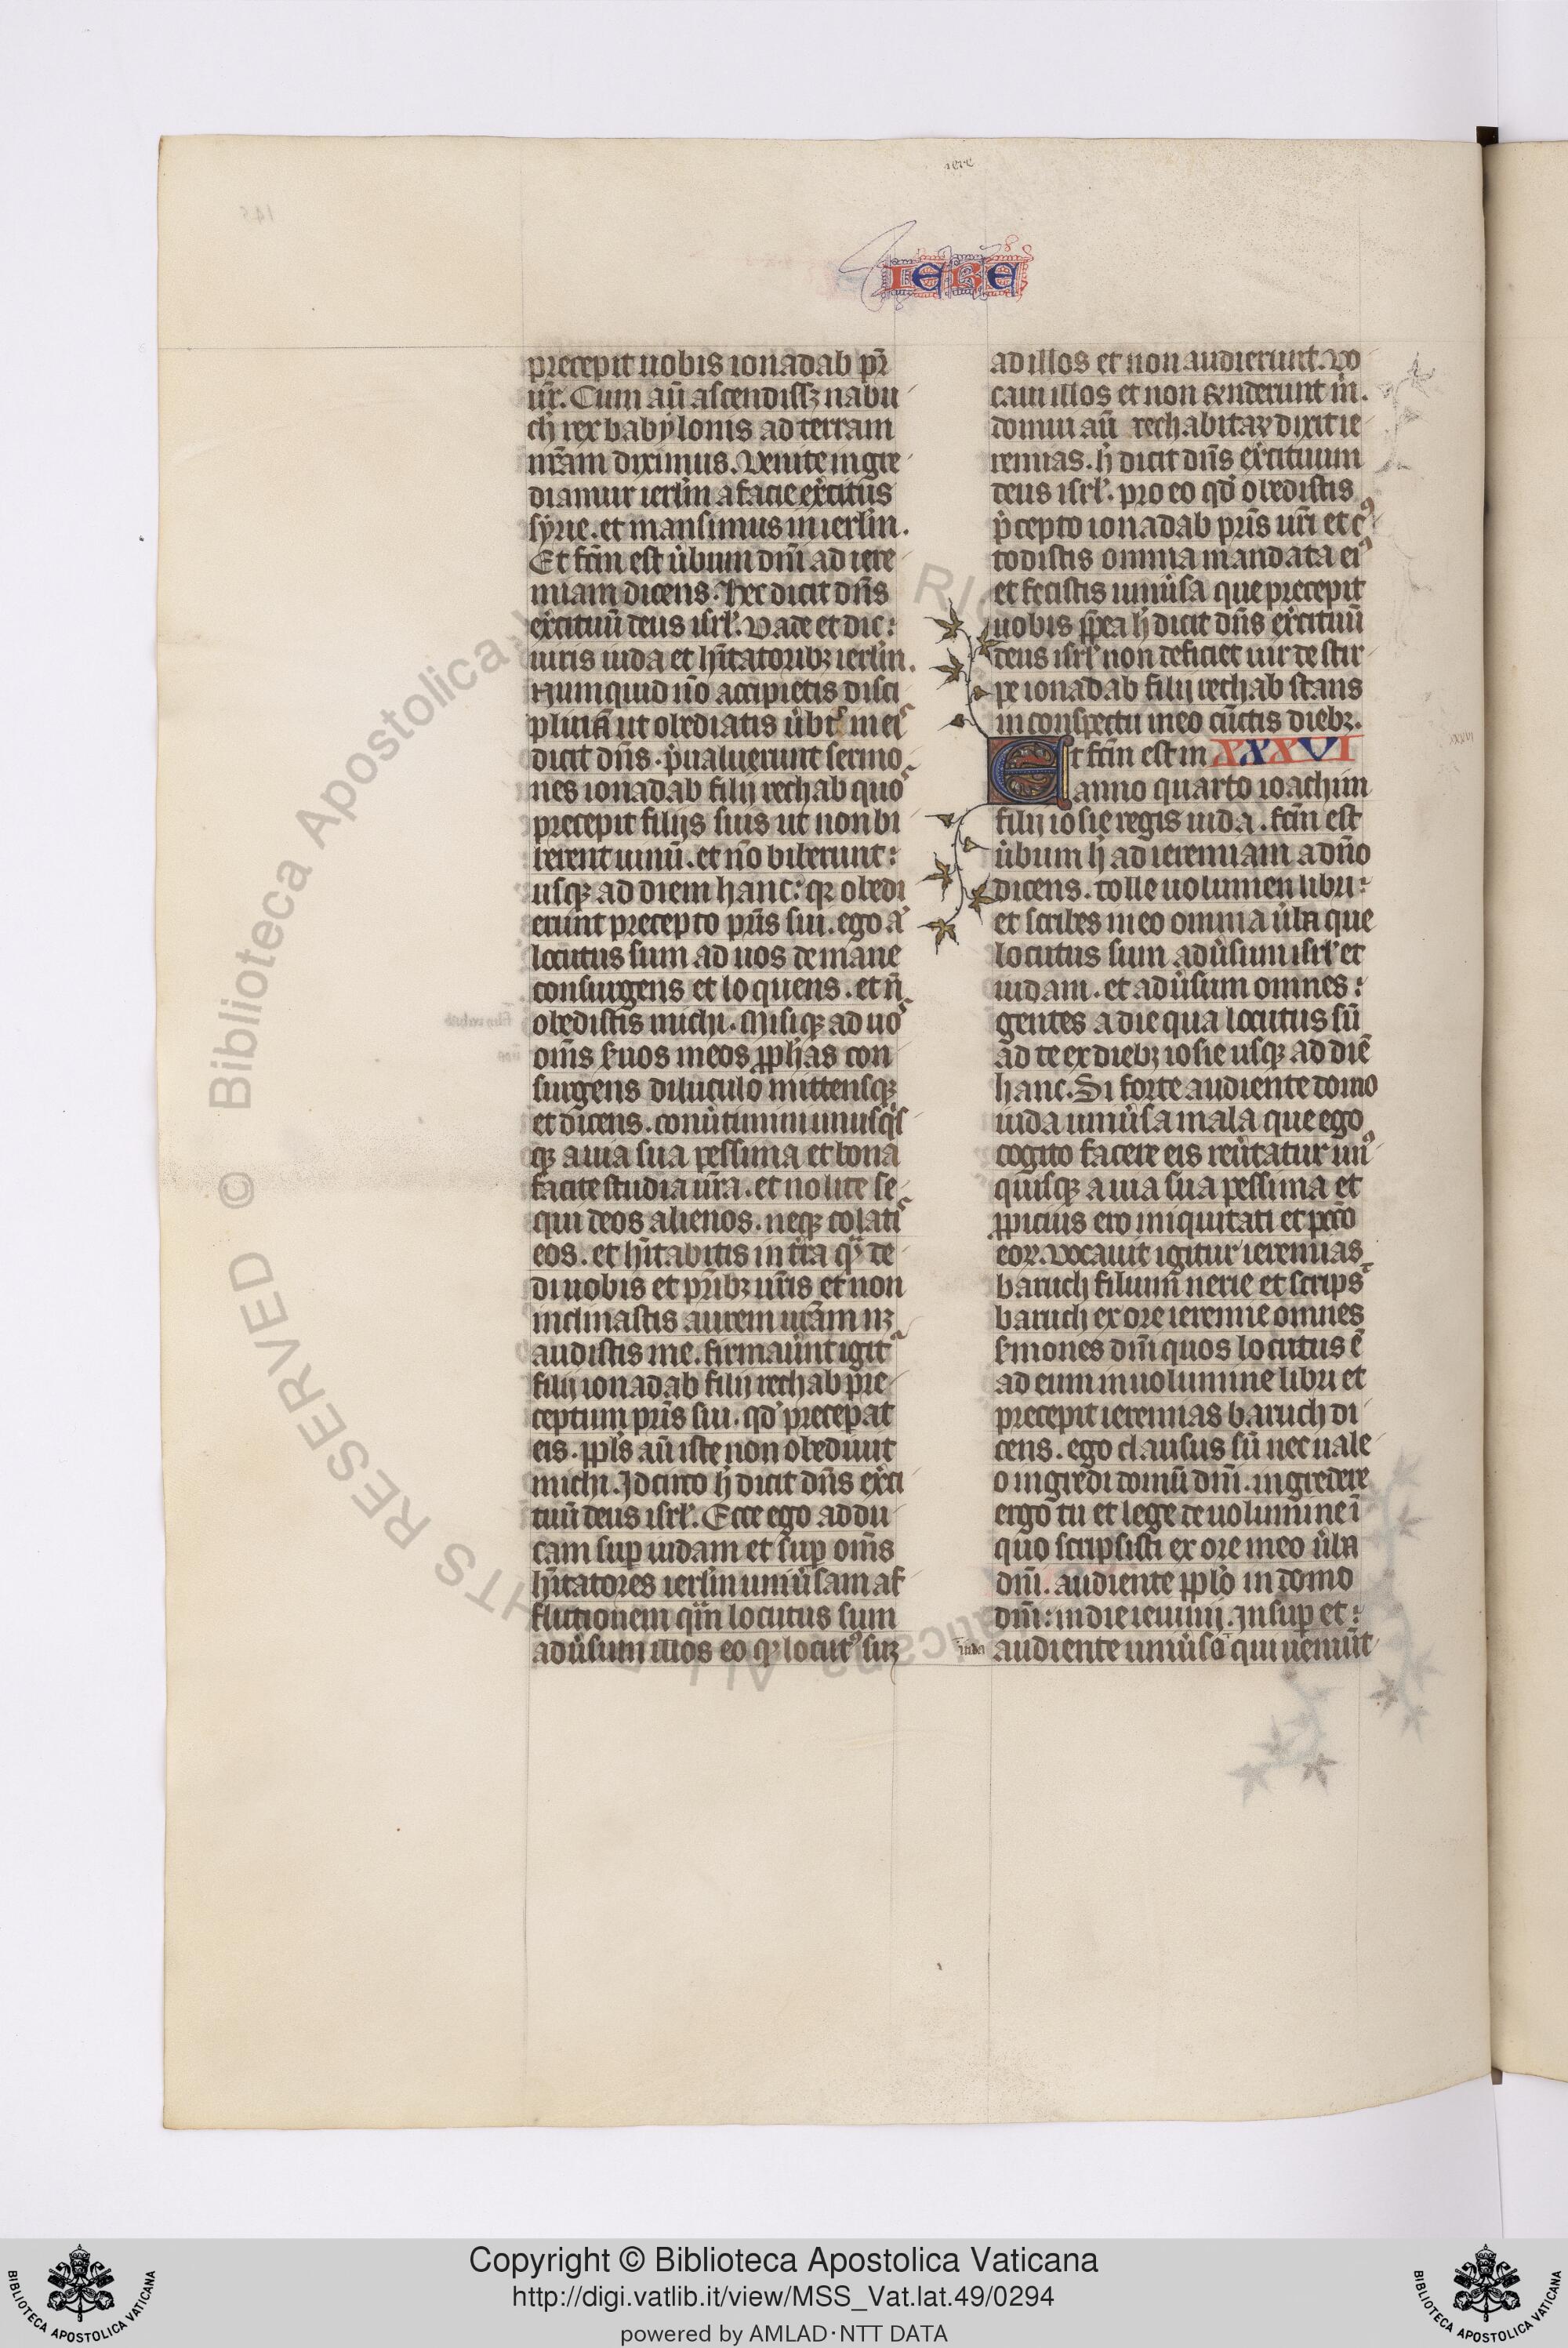 iere
IERE
precepit uobis ionadab pr̄
ur̄. Cum aū ascendissꝫ nabu
ch̄ rex babylonis ad terram
nr̄am diximus. Venite ingre
diamur ierlm̄ a facie exͥcitus
syrie. et mansimus in ierlm̄.
Et fcm̄ est u̓bum dn̄i ad iere
miam dicens. Hec dicit dn̄s
exͥcituū deus isrl̓. Vade et dic:
uiris iuda et hītatoribꝫ ierlm̄.
Numquid nō accipietis disci
plinā ut obediatis u̓bis meis
dicit dn̄s. p̓ualuerunt sermo
nes ionadab filij rechab quos
precepit filijs suis ut non bi
berent uinū. et nō biberunt:
usqꝫ ad diem hanc: qꝛ obedi
erunt precepto pr̄is sui. ego aͧ
locutus sum ad uos de mane
consurgens et loquens. et n̄
obedistis michi. Misiqꝫ ad uos
om̄s s̓uos meos ꝓphās con
surgens diluculo mittensqꝫ
et dicens. conu̓timini unusqͥs
qꝫ a uia sua pessima et bona
facite studia ur̄a. et nolite se
qui deos alienos. neqꝫ colatis
eos. et hītabitis in tr̄a qͣ de
di uobis et pr̄ibꝫ ur̄is et non
inclinastis aurem ur̄am nꝫ
audistis me. firmau̓unt igit᷑
filij ionadab filij rechab pre
ceptum pr̄is sui. qd̓ preceperat
eis. ppl̓s aū iste non obediuit
michi. Idcirco h̓ dicit dn̄s exͥci
tuū deus isrl̓. Ecce ego addu
cam suꝑ iudam et suꝑ om̄s
hītatores ierlm̄ uniu̓sam af
flictionem qͣm locutus sum
adu̓sum illos eo qꝫ locutꝰ suꝫ
ad illos et non audierunt. Vo
caui illos et non r̓nderunt m̓.
domui aū rechabitaꝝ dixit ie
remias. h̓ dicit dn̄s exͥcituum
deus isrl̓. pro eo qd̓ obedistis
p̓cepto ionadab pr̄is ur̄i et cꝰ
todistis omnia mandata eiꝰ
et fecistis uniu̓sa que precepit
uobis ꝓpͣea h̓ dicit dn̄s exͥcituū
deus isrl̓ non deficiet uir de stir
pe ionadab filij rechab stans
in conspectu meo cūctis diebꝫ.
Et fcm̄ est in XXXVI
anno quarto ioachim
filij iosie regis iuda. fcm̄ est
u̓bum h̓ ad ieremiam a dn̄o
dicens. tolle uolumen libri:
et scribes in eo omnia u̓ba que
locutus sum adu̓sum isrl̓ et
iudam. et adu̓sum omnes:
gentes a die qua locutus sū
ad te ex diebꝫ iosie usqꝫ ad diē
hanc. Si forte audiente domo
iuda uniu̓sa mala que ego
cogito facere eis reu̓tatur unꝰ
quisqꝫ a uia sua pessima et
ꝓpicius ero iniquitati et pecc̄o
eoꝝ. Vocauit igitur ieremias
baruch filium nerie et scrips᷑
baruch ex ore ieremie omnes
s̓mones dn̄i quos locutus ē
ad eum in uolumine libri et
precepit ieremias baruch di
cens. ego clausus sū nec uale
o ingredi domū dn̄i. ingredere
ergo tu et lege de uolumine ī
quo scripsisti ex ore meo u̓ba
dn̄i. audiente ppl̓o in domo
dn̄i: in die ieiunij. Insuꝑ et:
iuda audiente uniu̓so qui ueniūt
Biblioteca Apostolica
© Biblioteca Apostolica Vaticana ALL RIGHTS RESERVED
Copyright © Biblioteca Apostolica Vaticana
http://digi.vatlib.it/view/MSS_Vat.lat.49/0294
powered by AMLAD·NTT DATA
BIBLIOTECA APOSTOLICA VATICANA
BIBLIOTECA APOSTOLICA VATICANA